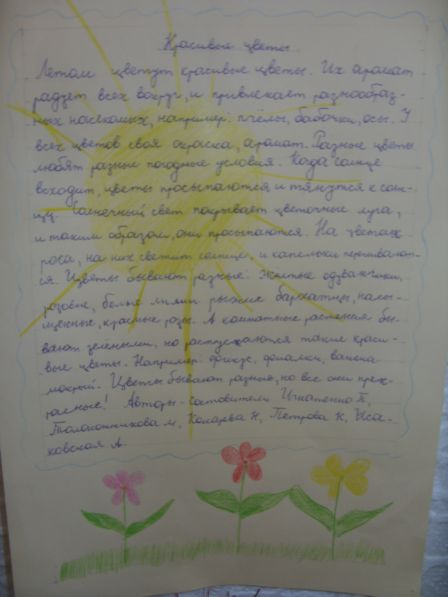 Красивые цветы.
Летом цветут красивые цветы. Их аромат
радует всех вокруг, и привлекает разнообраз-
ных насекомых, например: пчёлы, бабочки, осы. У
всех цветов своя окраска, аромат. Разные цветы
любят разные погодные условия. Когда солнце
всходит, цветы просыпаются и тянутся к солн-
цу. Солнечный свет покрывает цветочные луга,
и таким образом, они просыпаются. На цветах
роса, на них светит солнце, и капельки переливают-
ся. Цветы бывают разные: желтые одуванчики,
розовые, белые лилии, рыжие бархатцы, насы-
щенные, красные розы. А комнатные растения бы-
вают зелёными, но распускаются такие краси-
вые цветы. Например: фикус, фиалки, ванька
мокрый. Цветы бывают разные, но все они прек-
расные! Авторы-составители Игнатенко П,
М, Комарева Н, Петрова К, Иса-
ковская А.